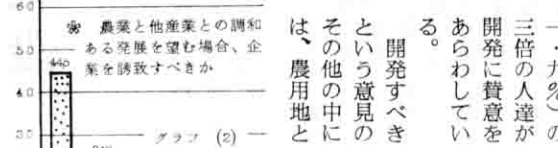 一・九%)の
三倍の人達が
開発に賛意を
あらわしてい
る。
開発すべき
という意見の
その他の中に
は、農用地と
60
農業と他産業との調和
ある発展を望む場合、企
業を誘致すべきか
50
440
40
グラフ (2)
30